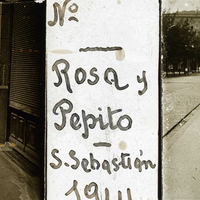 Nº
Rosa y
Pepito
S. Sebastián